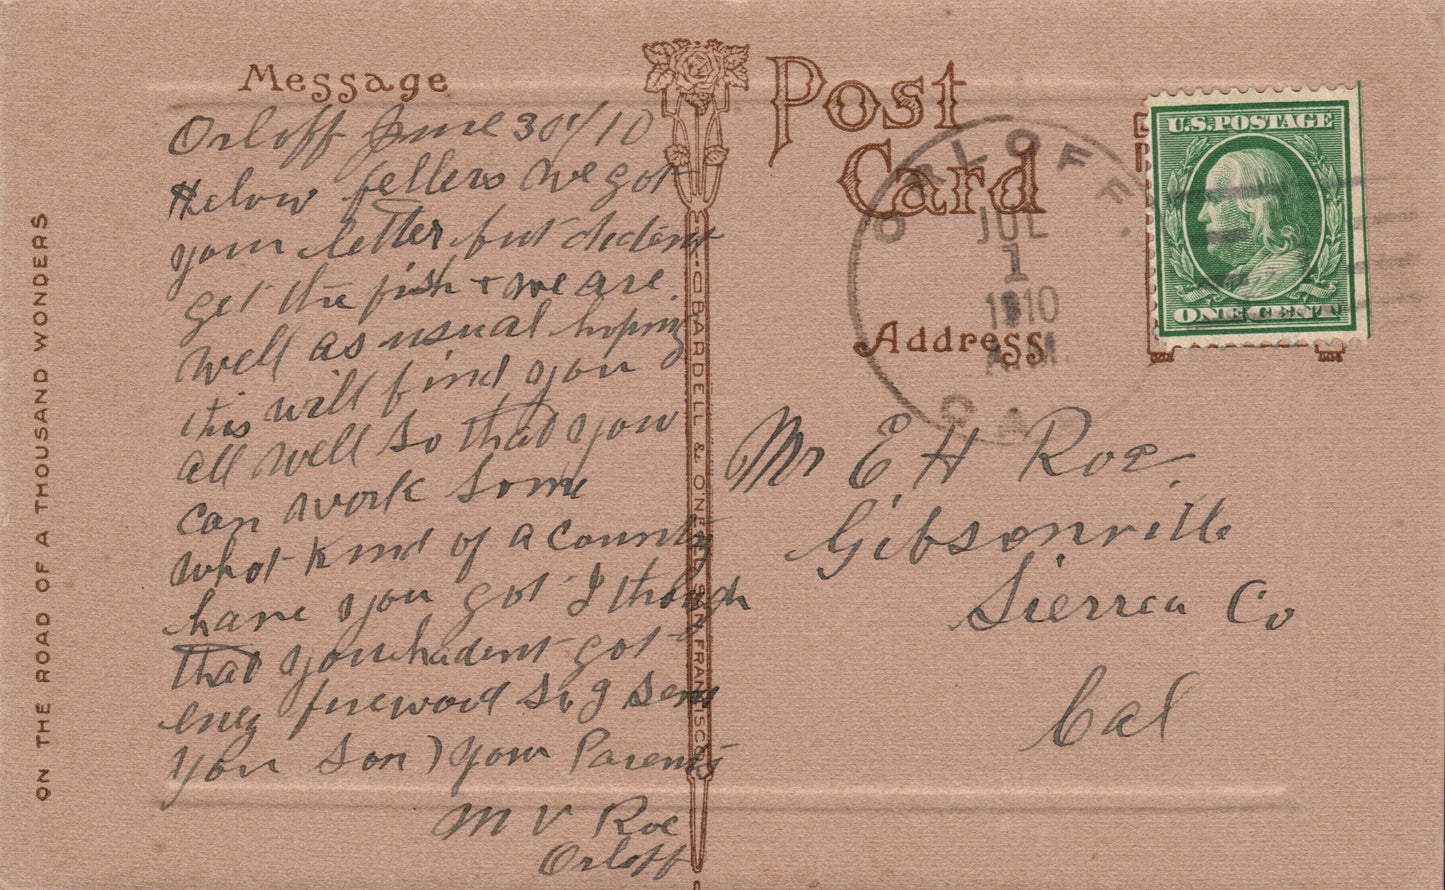 Message
Orloff June 30th/10
Helow fellers we got
your letter but dident
get the fish + we are
well as usual hoping
this will find you
all well so that you
can work some
what kind of a county
have you got I though
that you hadent got
eney firewood so I send
you som) your Parents
M V Roe
Orloff
ON THE ROAD OF A THOUSAND WONDERS
BARDELL & ONE SAN FRANCISCO
Post
Card
Address
ORLOFF
JUL
1
1910
A.M.
CAL
U.S.POSTAGE
ONE CENT
Mr E H Roe
Gibsonville
Sierrea Co
Cal